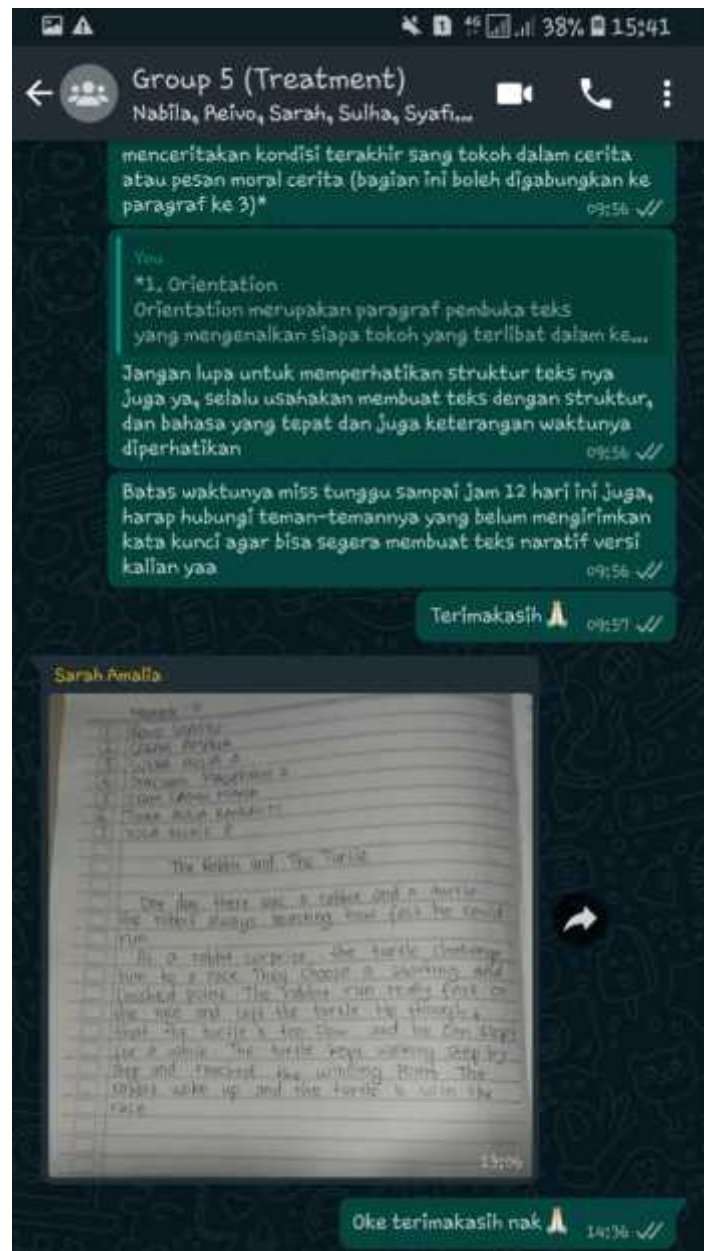 4G 38% 15:41
Group 5 (Treatment)
Nabila, Reivo, Sarah, Sulha, Syafi...
menceritakan kondisi terakhir sang tokoh dalam cerita
atau pesan moral cerita (bagian ini boleh digabungkan ke
paragraf ke 3)*
09:56
You
*1. Orientation
Orientation merupakan paragraf pembuka teks
yang mengenalkan siapa tokoh yang terlibat dalam ke...
Jangan lupa untuk memperhatikan struktur teks nya
juga ya, selalu usahakan membuat teks dengan struktur,
dan bahasa yang tepat dan juga keterangan waktunya
diperhatikan
09:56
Batas waktunya miss tunggu sampai jam 12 hari ini juga,
harap hubungi teman-temannya yang belum mengirimkan
kata kunci agar bisa segera membuat teks naratif versi
kalian yaa
09:56
Terimakasih 🙏🏻 09:57
Sarah Amalia
The Rabbit and The Turtle
One day there was a rabbit and a turtle
the rabbit always how fast he could
run
As a rabbit surprise, the turtle challenge
him to a race. They choose a and
finished point. The rabbit run really fast on
the race and left the turtle. He thought
that the turtle is too slow and he can sleep
for a while. The turtle keeps step by
step and reached the point. The
rabbit woke up and the turtle is the
race
13:06
Oke terimakasih nak 🙏🏻 14:36